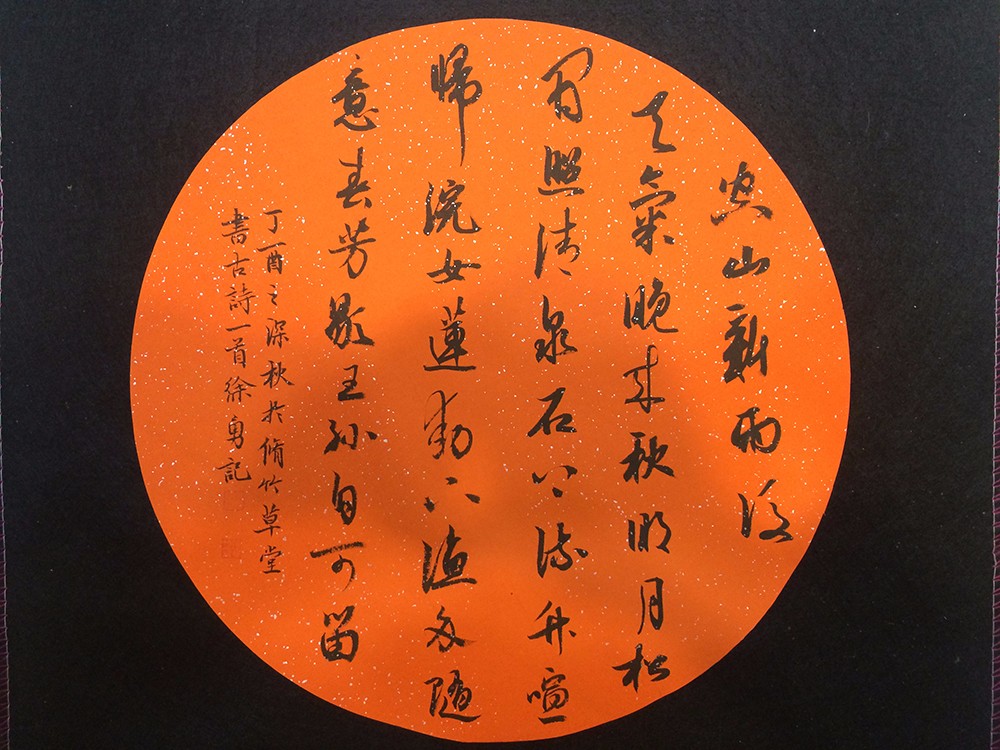 空山新雨後
天氣晚来秋明月松
間照清泉石上流竹喧
歸浣女蓮動下漁舟隨
意春芳歇王孫自可留
丁酉之深秋於脩竹草堂
書古詩一首徐勇記